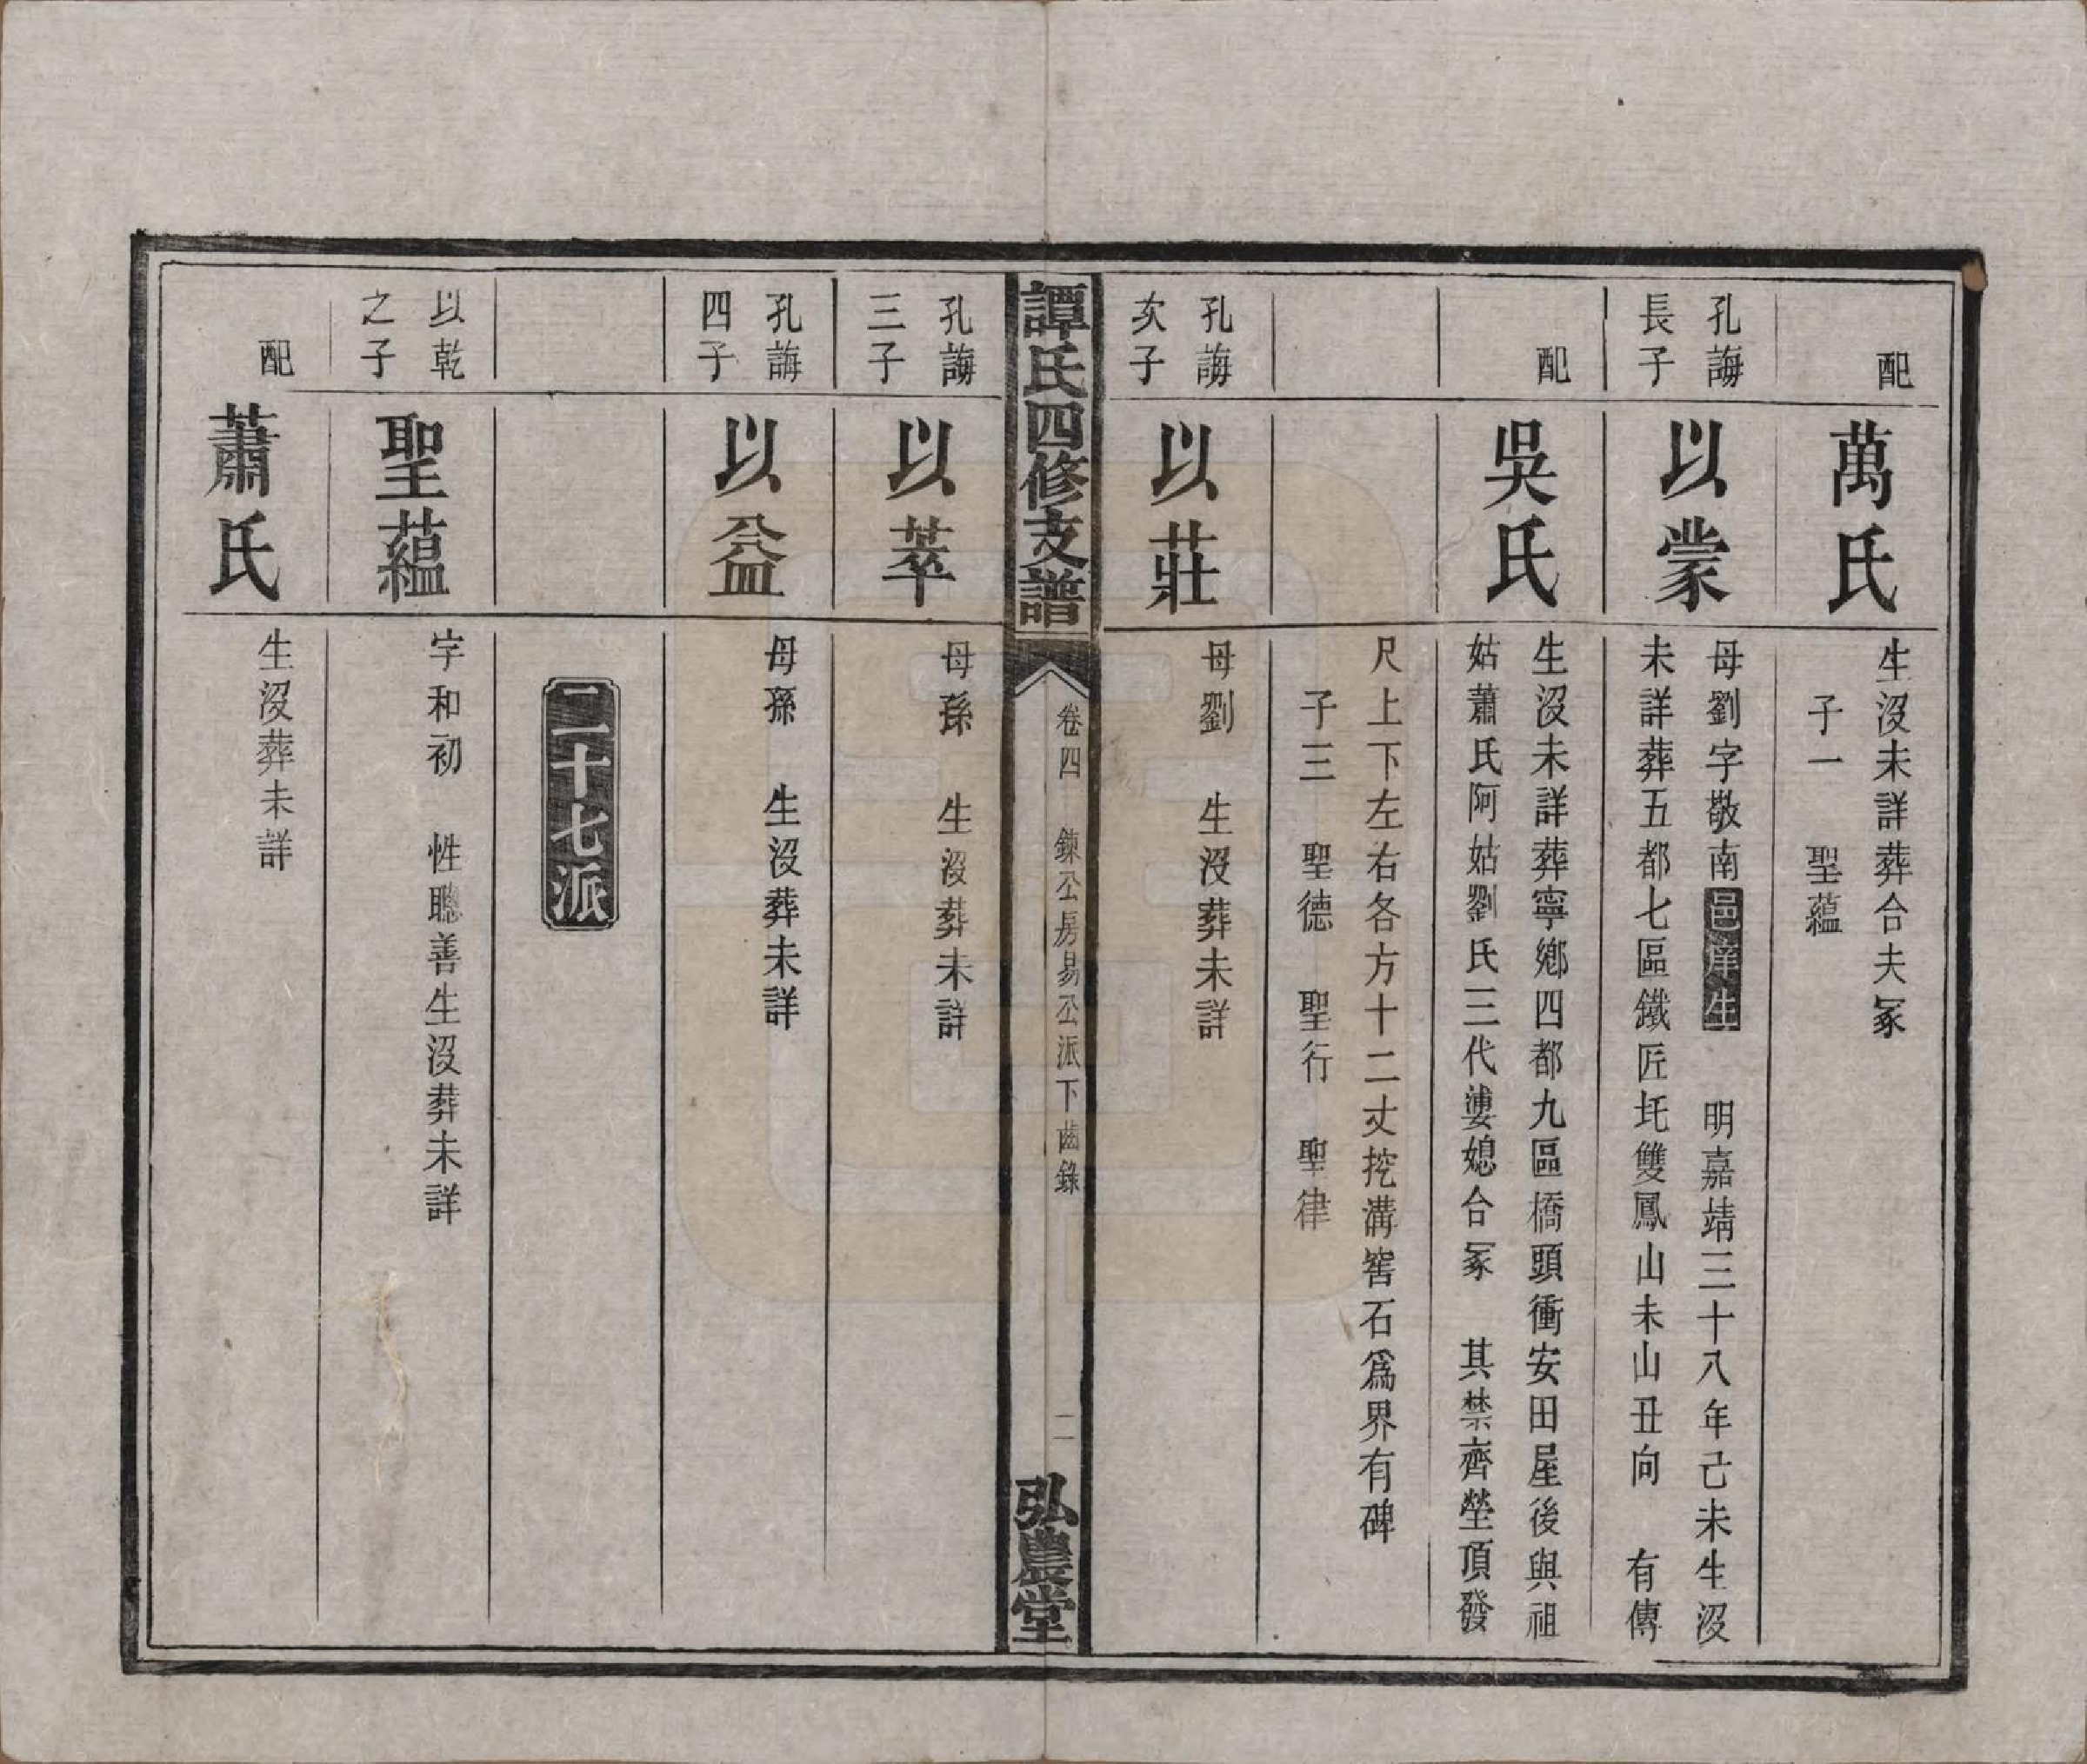 配
萬氏
生沒未詳葬合夫冢
子一　聖蘊
孔誨
長子
以蒙
母劉字敬南邑庠生　明嘉靖三十八年己未生沒
未詳葬五都七區鐵匠坵雙鳳山未山丑向　有傳
配
吳氏
生沒未詳葬寧鄉四都九區橋頭衝安田屋後與祖
姑蕭氏阿姑劉氏三代婆媳合冢　其禁齊塋頂發
尺上下左右各方十二丈挖溝窖石爲界有碑
子三　聖德　聖行　聖律
孔誨
次子
以莊
母劉　生沒葬未詳
譚氏四修支譜
卷四　鍊公房易公派下齒錄
二
弘農堂
孔誨
三子
以萃
母孫　生沒葬未詳
孔誨
四子
以益
母孫　生沒葬未詳
二十七派
以乾
之子
聖蘊
字和初　性聰善生沒葬未詳
配
蕭氏
生沒葬未詳